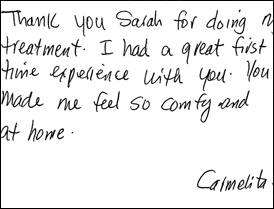 Thank you Sarah for doing
treatment. I had a great first
time experience with you. You
made me feel so comfy and
at home.
Carmelita.